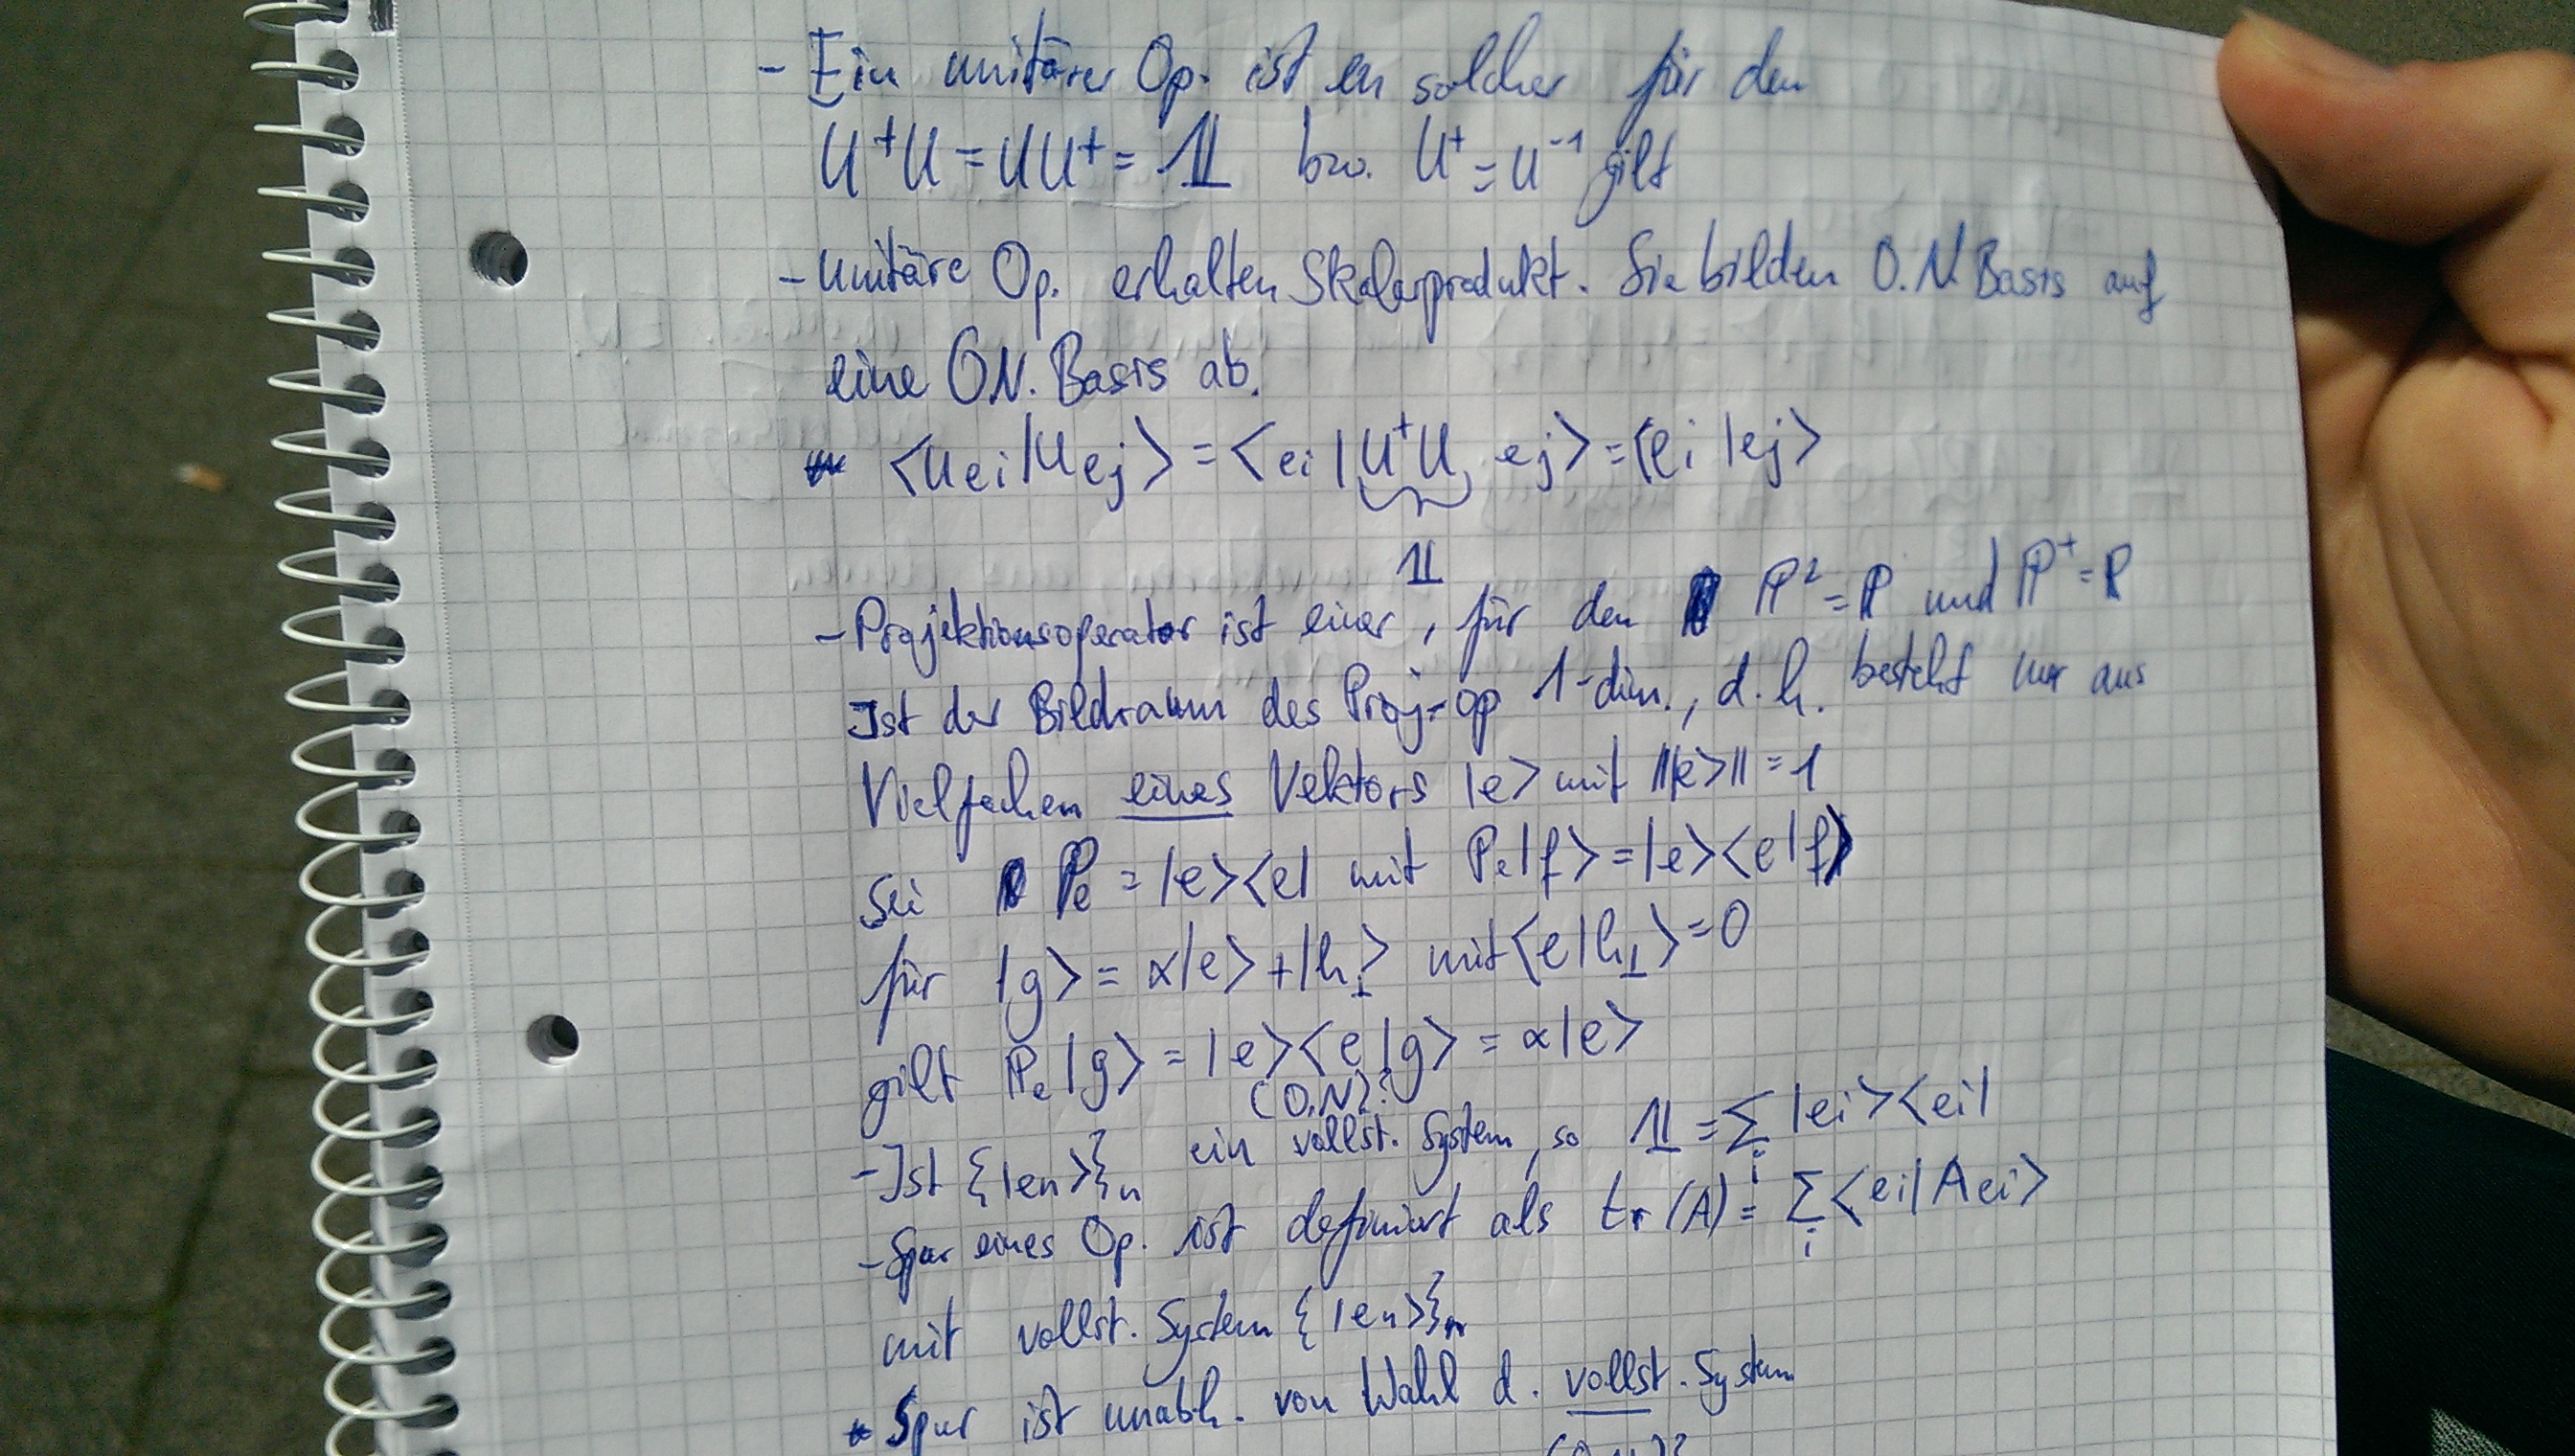 - Ein unitärer Op. ist en solcher für den
U⁺U = UU⁺ = 𝟙 bzw. U⁺ = U⁻¹ gilt
- Unitäre Op. erhalten Skalarprodukt. Sie bilden O.N. Basis auf
eine O.N. Basis ab.
<Uei|Uej> = <ei|U⁺U ej> = <ei|ej>
𝟙
- Projektionsoperator ist einer, für den ℙ² = ℙ und ℙ⁺ = ℙ
Ist der Bildraum des Proj-Op 1-dim., d.h. besteht nur aus
Vielfachen eines Vektors |e> mit |||e>|| = 1
Sei ℙe = |e><e| mit ℙe|f> = |e><e|f>
für |g> = α|e> + |h⊥> mit <e|h⊥> = 0
gilt ℙe|g> = |e><e|g> = α|e>
(O.N)?
- Ist {|en>}n ein vollst. System, so 𝟙 = ∑i |ei><ei|
- Spur eines Op. ist definiert als tr(A) = ∑i <ei|Aei>
mit vollst. System {|en>}n
Spur ist unabh. von Wahl d. vollst. System